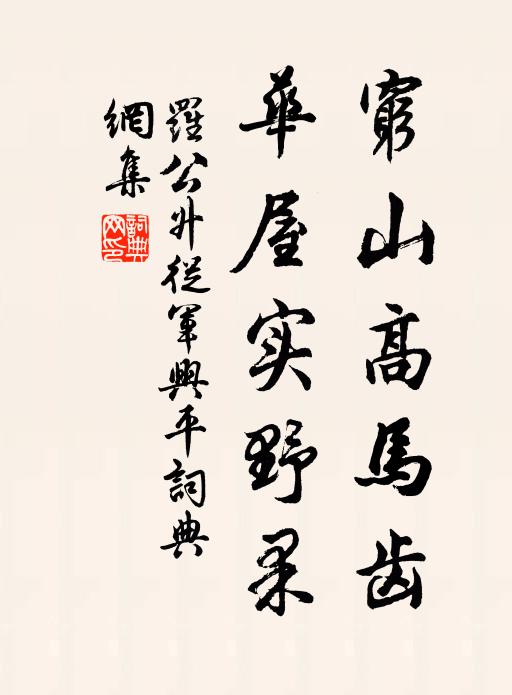 窮山高馬齿
華屋实野果
羅公升從軍興平詞典
網集
詞典网印